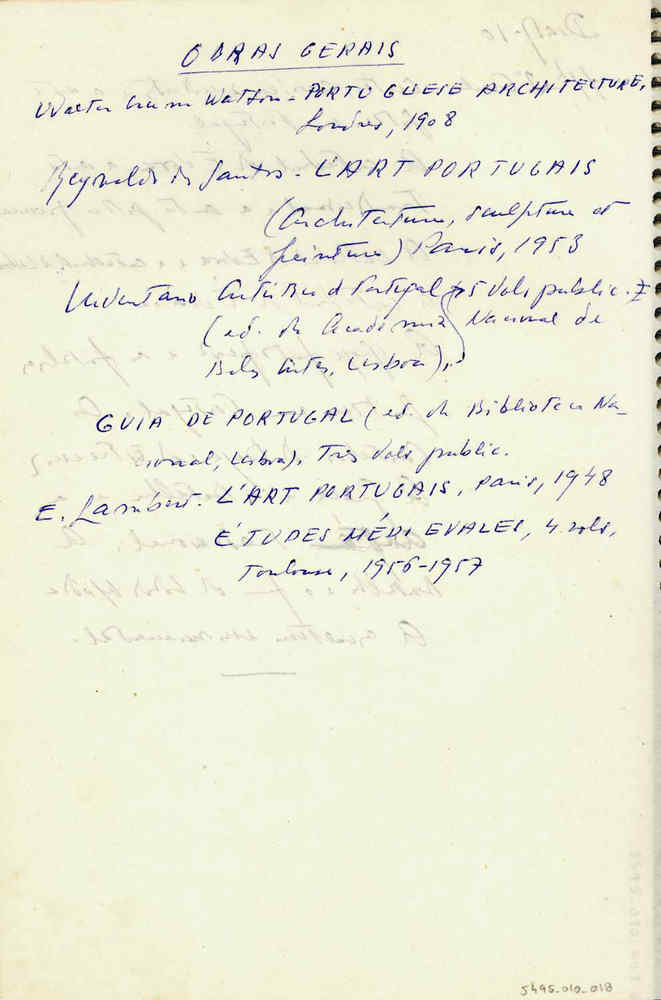 OBRAS GERAIS
Walter Crum Watson - PORTUGUESE ARCHITECTURE,
Londres, 1908
Reynaldo dos Santos - L'ART PORTUGAIS
(Architecture, sculpture et
peinture) Paris, 1953
Inventario Artístico de Portugal 5 vols public.
(ed. da Academia Nacional de
Belas Artes, Lisboa).
GUIA DE PORTUGAL (ed. da Biblioteca Na-
cional, Lisboa), Três vols public.
E. Lambert - L'ART PORTUGAIS, Paris, 1948
ÉTUDES MÉDIEVALES, 4 vols,
Toulouse, 1956-1957
5495.010.018